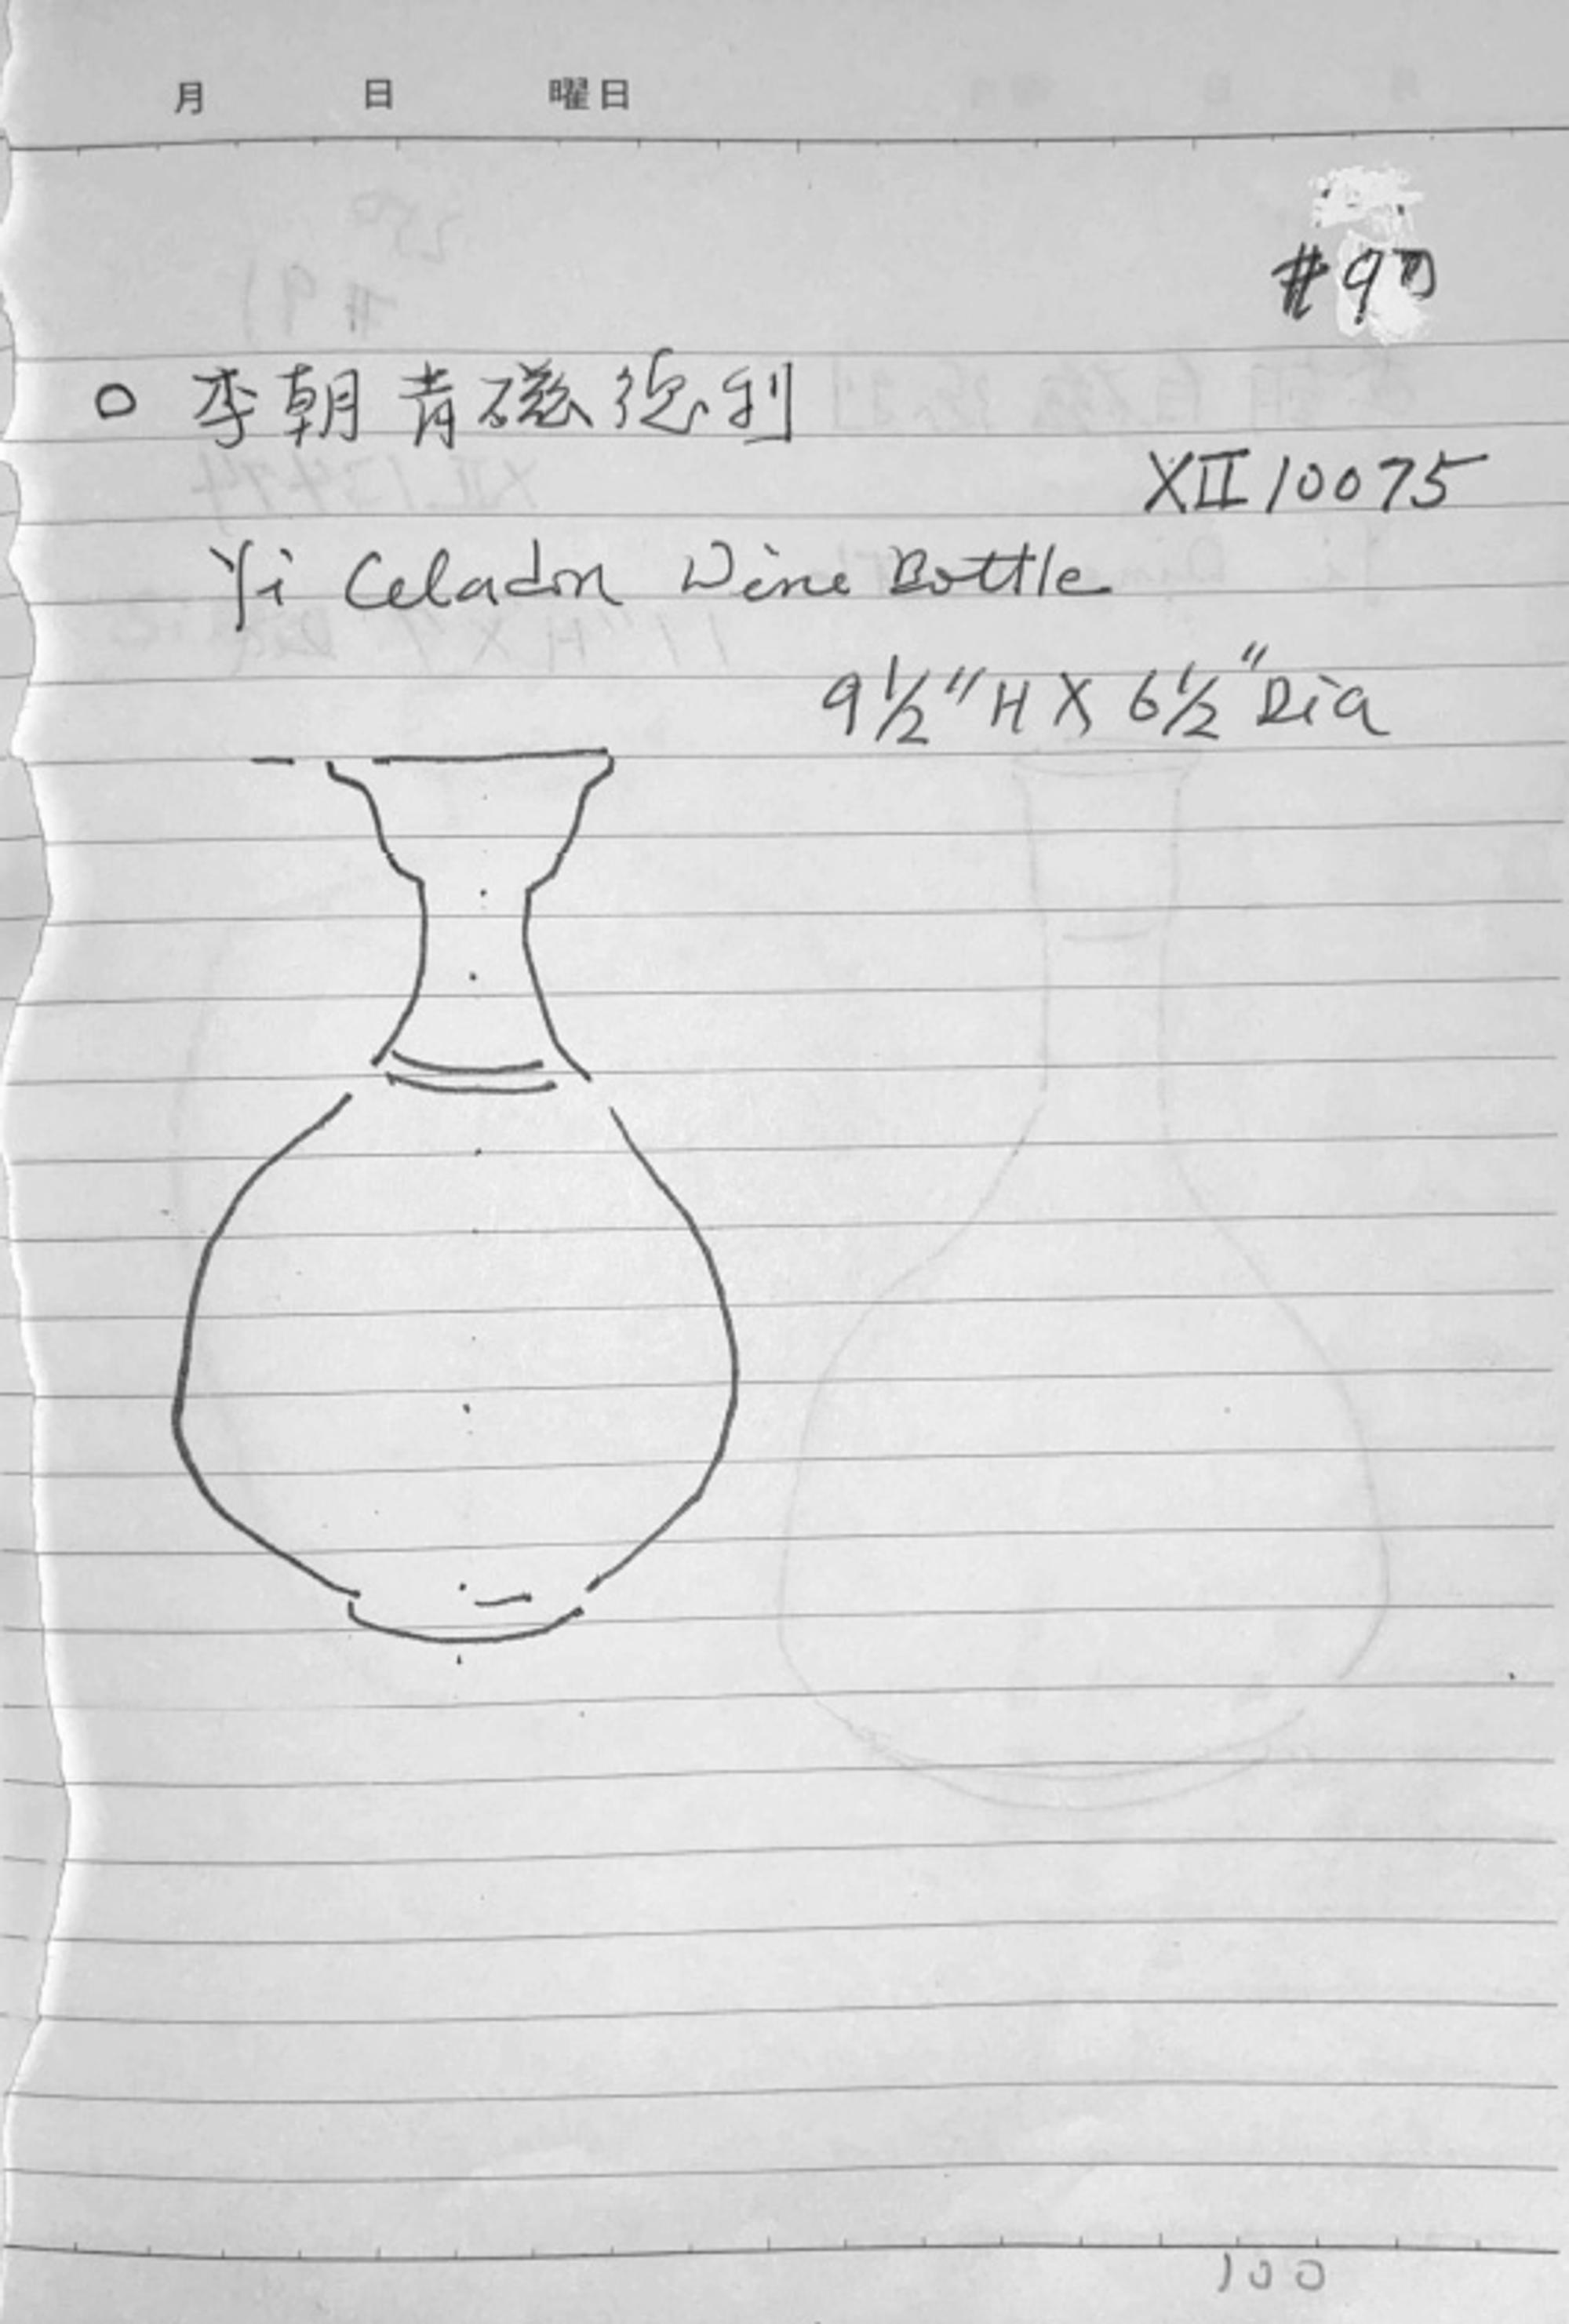 月 日 曜日
#90
○ 李朝青磁徳利
XII 10075
Yi Celadon Wine Bottle
9½"H X 6½" Dia
100